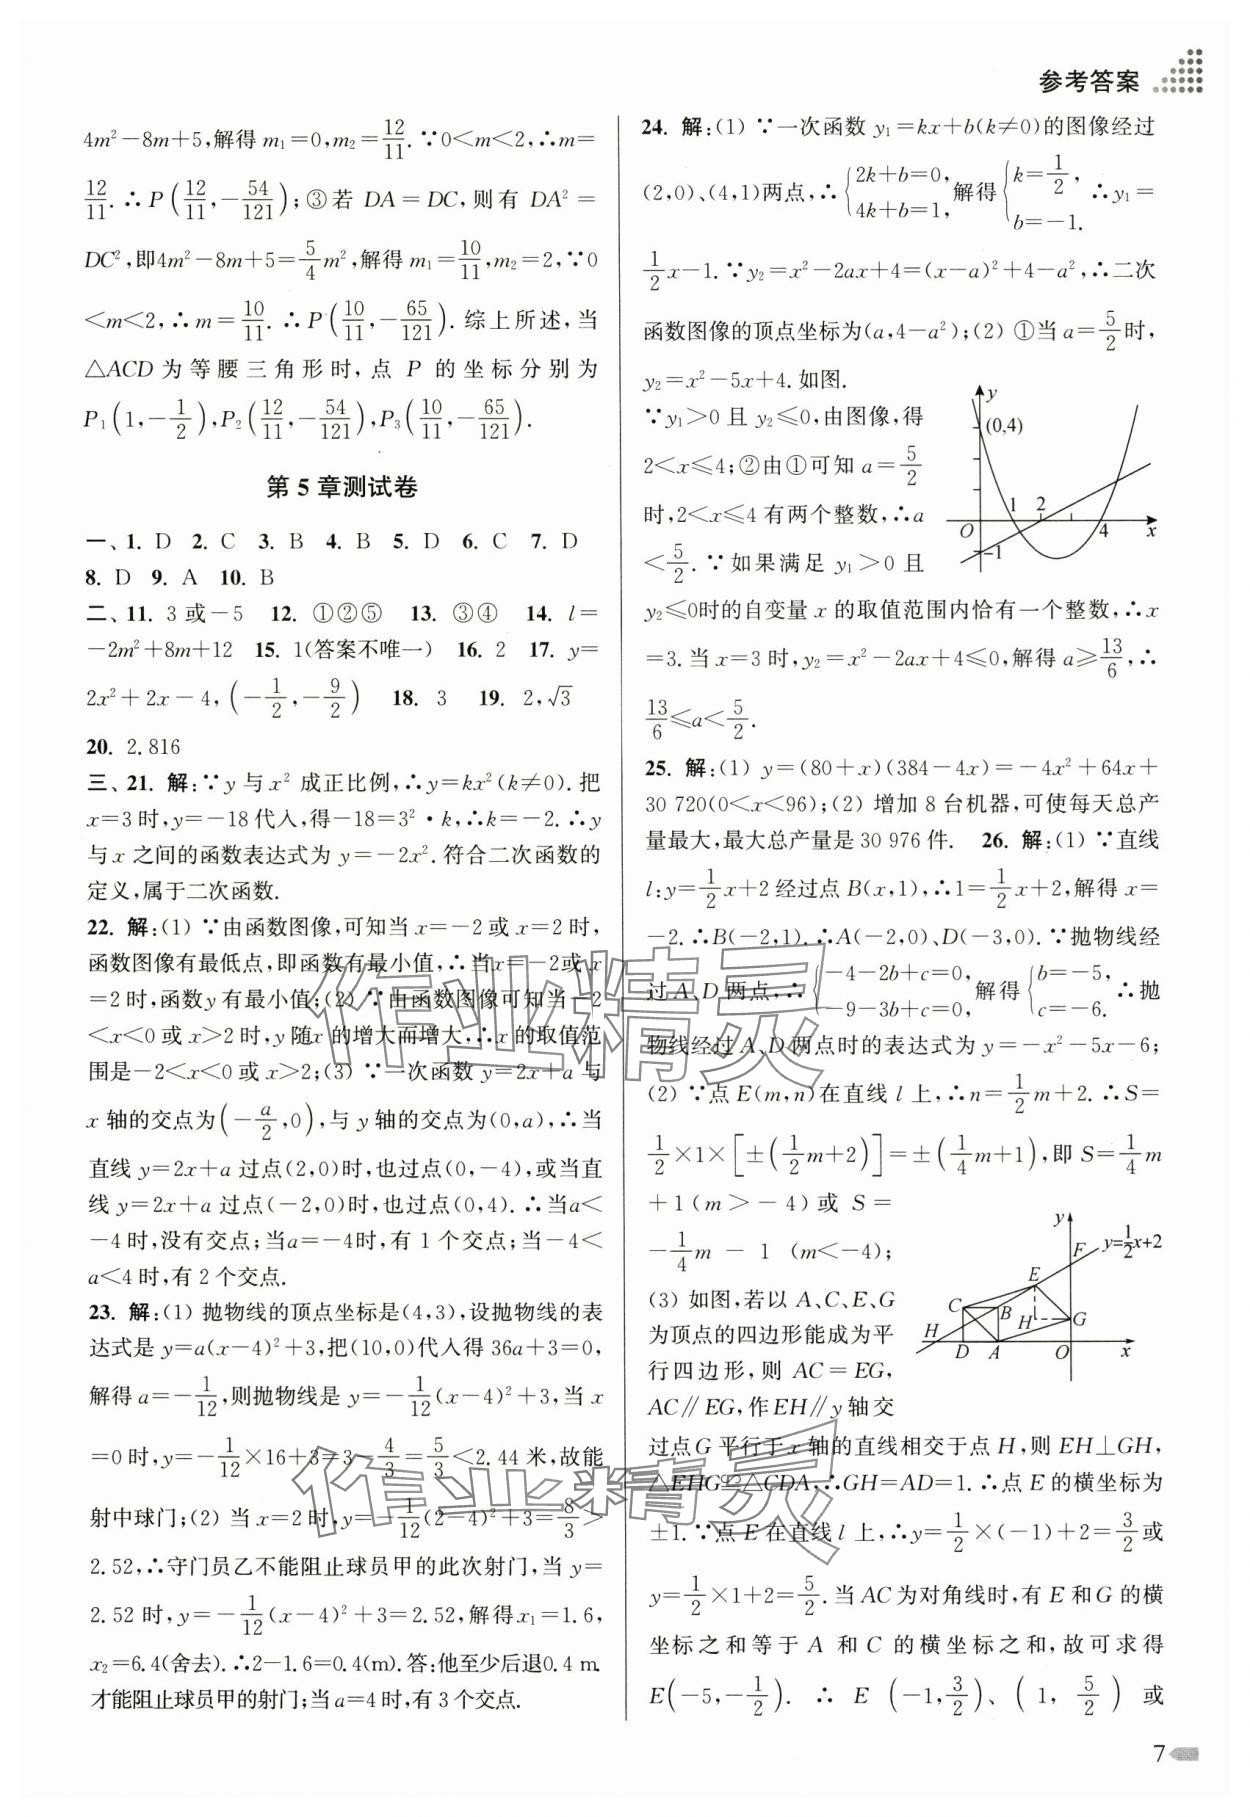 参考答案
4m²－8m＋5,解得 m₁＝0,m₂＝12/11.∵0＜m＜2,∴m＝
12/11.∴P(12/11,－54/121);③若 DA＝DC,则有 DA²＝
DC²,即4m²－8m＋5＝5/4m²,解得 m₁＝10/11,m₂＝2,∵0
＜m＜2,∴m＝10/11.∴P(10/11,－65/121).综上所述,当
△ACD 为等腰三角形时,点 P 的坐标分别为
P₁(1,－1/2),P₂(12/11,－54/121),P₃(10/11,－65/121).
第 5 章测试卷
一、1. D 2. C 3. B 4. B 5. D 6. C 7. D
8. D 9. A 10. B
二、11. 3 或－5 12. ①②⑤ 13. ③④ 14. l＝
－2m²＋8m＋12 15. 1(答案不唯一) 16. 2 17. y＝
2x²＋2x－4,(－1/2,－9/2) 18. 3 19. 2,√3
20. 2.816
三、21. 解:∵y 与 x² 成正比例,∴y＝kx²(k≠0).把
x＝3 时,y＝－18 代入,得－18＝3²·k,∴k＝－2.∴y
与 x 之间的函数表达式为 y＝－2x².符合二次函数的
定义,属于二次函数.
22. 解:(1) ∵由函数图像,可知当 x＝－2 或 x＝2 时,
函数图像有最低点,即函数有最小值,∴当x＝－2或 x
＝2 时,函数 y 有最小值;(2) ∵由函数图像可知当－2
＜x＜0 或 x＞2 时,y 随x 的增大而增大,∴x 的取值范
围是－2＜x＜0 或 x＞2;(3) ∵一次函数 y＝2x＋a 与
x 轴的交点为(－a/2,0),与 y 轴的交点为(0,a),∴当
直线 y＝2x＋a 过点(2,0)时,也过点(0,－4),或当直
线 y＝2x＋a 过点(－2,0)时,也过点(0,4).∴当a＜
－4 时,没有交点;当a＝－4时,有 1 个交点;当－4＜
a＜4 时,有 2 个交点.
23. 解:(1) 抛物线的顶点坐标是(4,3),设抛物线的表
达式是 y＝a(x－4)²＋3,把(10,0)代入得 36a＋3＝0,
解得 a＝－1/12,则抛物线是 y＝－1/12(x－4)²＋3,当 x
＝0 时,y＝－1/12×16＋3＝3－4/3＝5/3＜2.44 米,故能
射中球门;(2) 当 x＝2 时,y＝－1/12(2－4)²＋3＝8/3＞
2.52,∴守门员乙不能阻止球员甲的此次射门,当 y＝
2.52 时,y＝－1/12(x－4)²＋3＝2.52,解得x₁＝1.6,
x₂＝6.4(舍去).∴2－1.6＝0.4(m).答:他至少后退0.4 m
才能阻止球员甲的射门;当 a＝4 时,有 3 个交点.
24. 解:(1) ∵一次函数 y₁＝kx＋b(k≠0)的图像经过
(2,0)、(4,1)两点,∴{2k＋b＝0, 4k＋b＝1,解得{k＝1/2, b＝－1. ∴y₁＝
1/2x－1.∵y₂＝x²－2ax＋4＝(x－a)²＋4－a²,∴二次
函数图像的顶点坐标为(a,4－a²);(2) ①当 a＝5/2时,
y₂＝x²－5x＋4.如图.
∵y₁＞0 且 y₂≤0,由图像,得
2＜x≤4;②由①可知 a＝5/2
时,2＜x≤4 有两个整数,∴a
＜5/2.∵如果满足 y₁＞0 且
y
(0,4)
1 2
O 4 x
－1
y₂≤0时的自变量 x 的取值范围内恰有一个整数,∴x
＝3.当 x＝3 时,y₂＝x²－2ax＋4≤0,解得 a≥13/6,∴
13/6≤a＜5/2.
25. 解:(1) y＝(80＋x)(384－4x)＝－4x²＋64x＋
30 720(0＜x＜96);(2) 增加 8 台机器,可使每天总产
量最大,最大总产量是 30 976 件. 26. 解:(1) ∵直线
l:y＝1/2x＋2 经过点 B(x,1),∴1＝1/2x＋2,解得 x＝
－2.∴B(－2,1).∴A(－2,0)、D(－3,0).∵抛物线经
过 A、D 两点,∴{－4－2b＋c＝0, －9－3b＋c＝0,解得{b＝－5, c＝－6. ∴抛
物线经过 A、D 两点时的表达式为 y＝－x²－5x－6;
(2) ∵点 E(m,n)在直线 l 上,∴n＝1/2m＋2.∴S＝
1/2×1×[±(1/2m＋2)]＝±(1/4m＋1),即 S＝1/4m
＋1(m＞－4)或 S＝
－1/4m－1 (m＜－4);
(3) 如图,若以 A、C、E、G
为顶点的四边形能成为平
行四边形,则 AC＝EG,
AC∥EG,作EH∥y 轴交
y
F y=1/2x+2
E
C B H′ G
H D A O x
过点G 平行于 x 轴的直线相交于点 H,则 EH⊥GH,
△EHG≌△CDA,∴GH＝AD＝1.∴点 E 的横坐标为
±1.∵点 E 在直线 l 上,∴y＝1/2×(－1)＋2＝3/2或
y＝1/2×1＋2＝5/2.当 AC 为对角线时,有 E 和G 的横
坐标之和等于 A 和 C 的横坐标之和,故可求得
E(－5,－1/2).∴E (－1,3/2)、(1,5/2)或
7
作业精灵
作业精灵